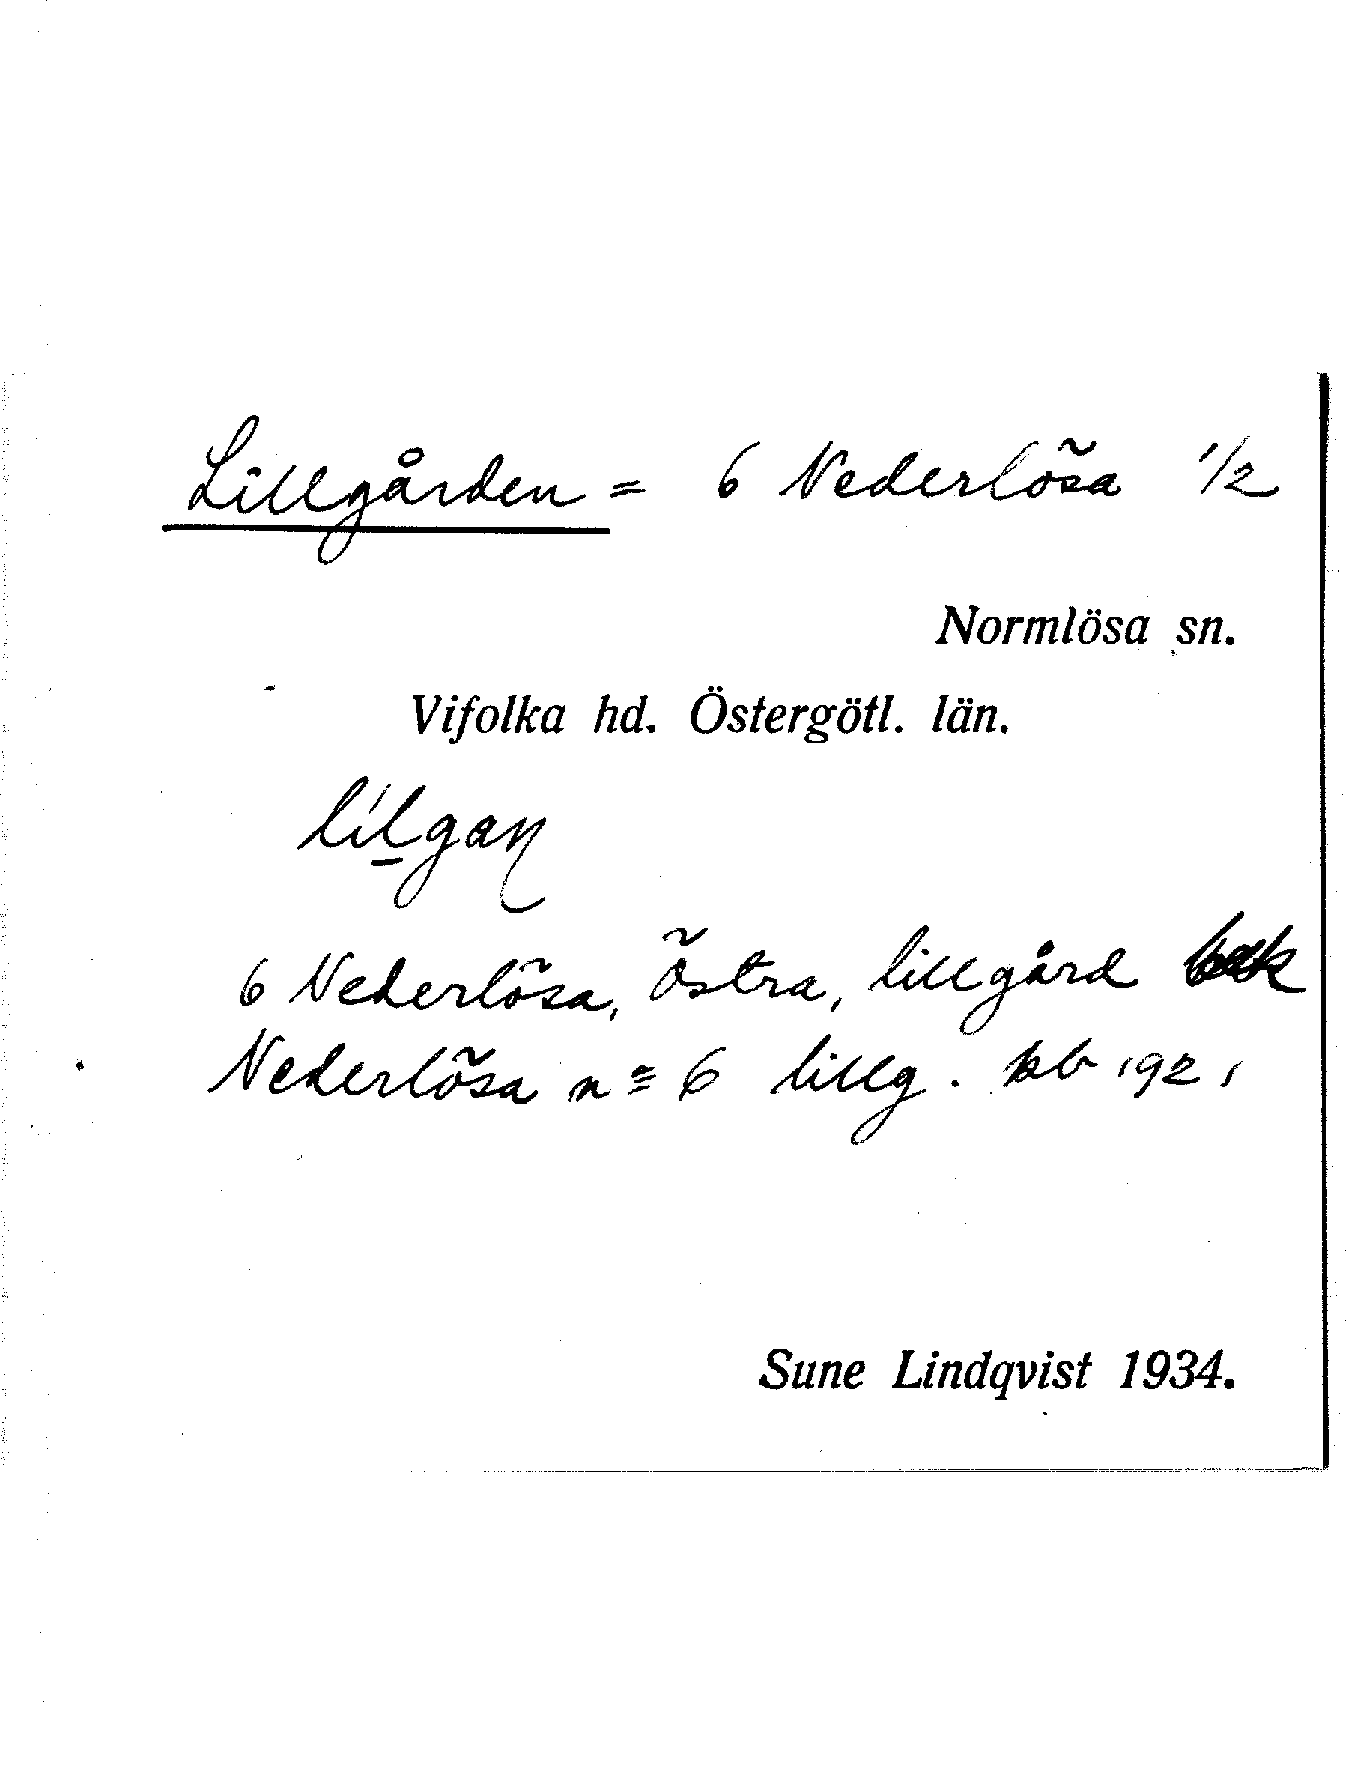 Lillgården = 6 Nederlösa 1/2
Normlösa sn.
Vifolka hd. Östergötl. län.
6 Nederlösa, Östra, lillgård
Nederlösa n = 6 lillg. kb 1921
Sune Lindqvist 1934.